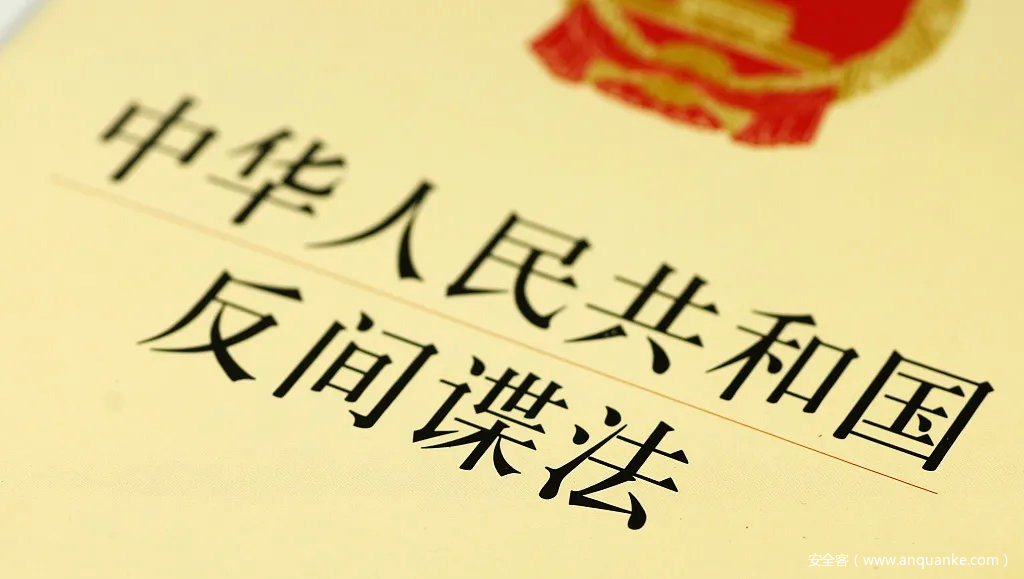 中华人民共和国
反间谍法
安全客（www.anquanke.com）